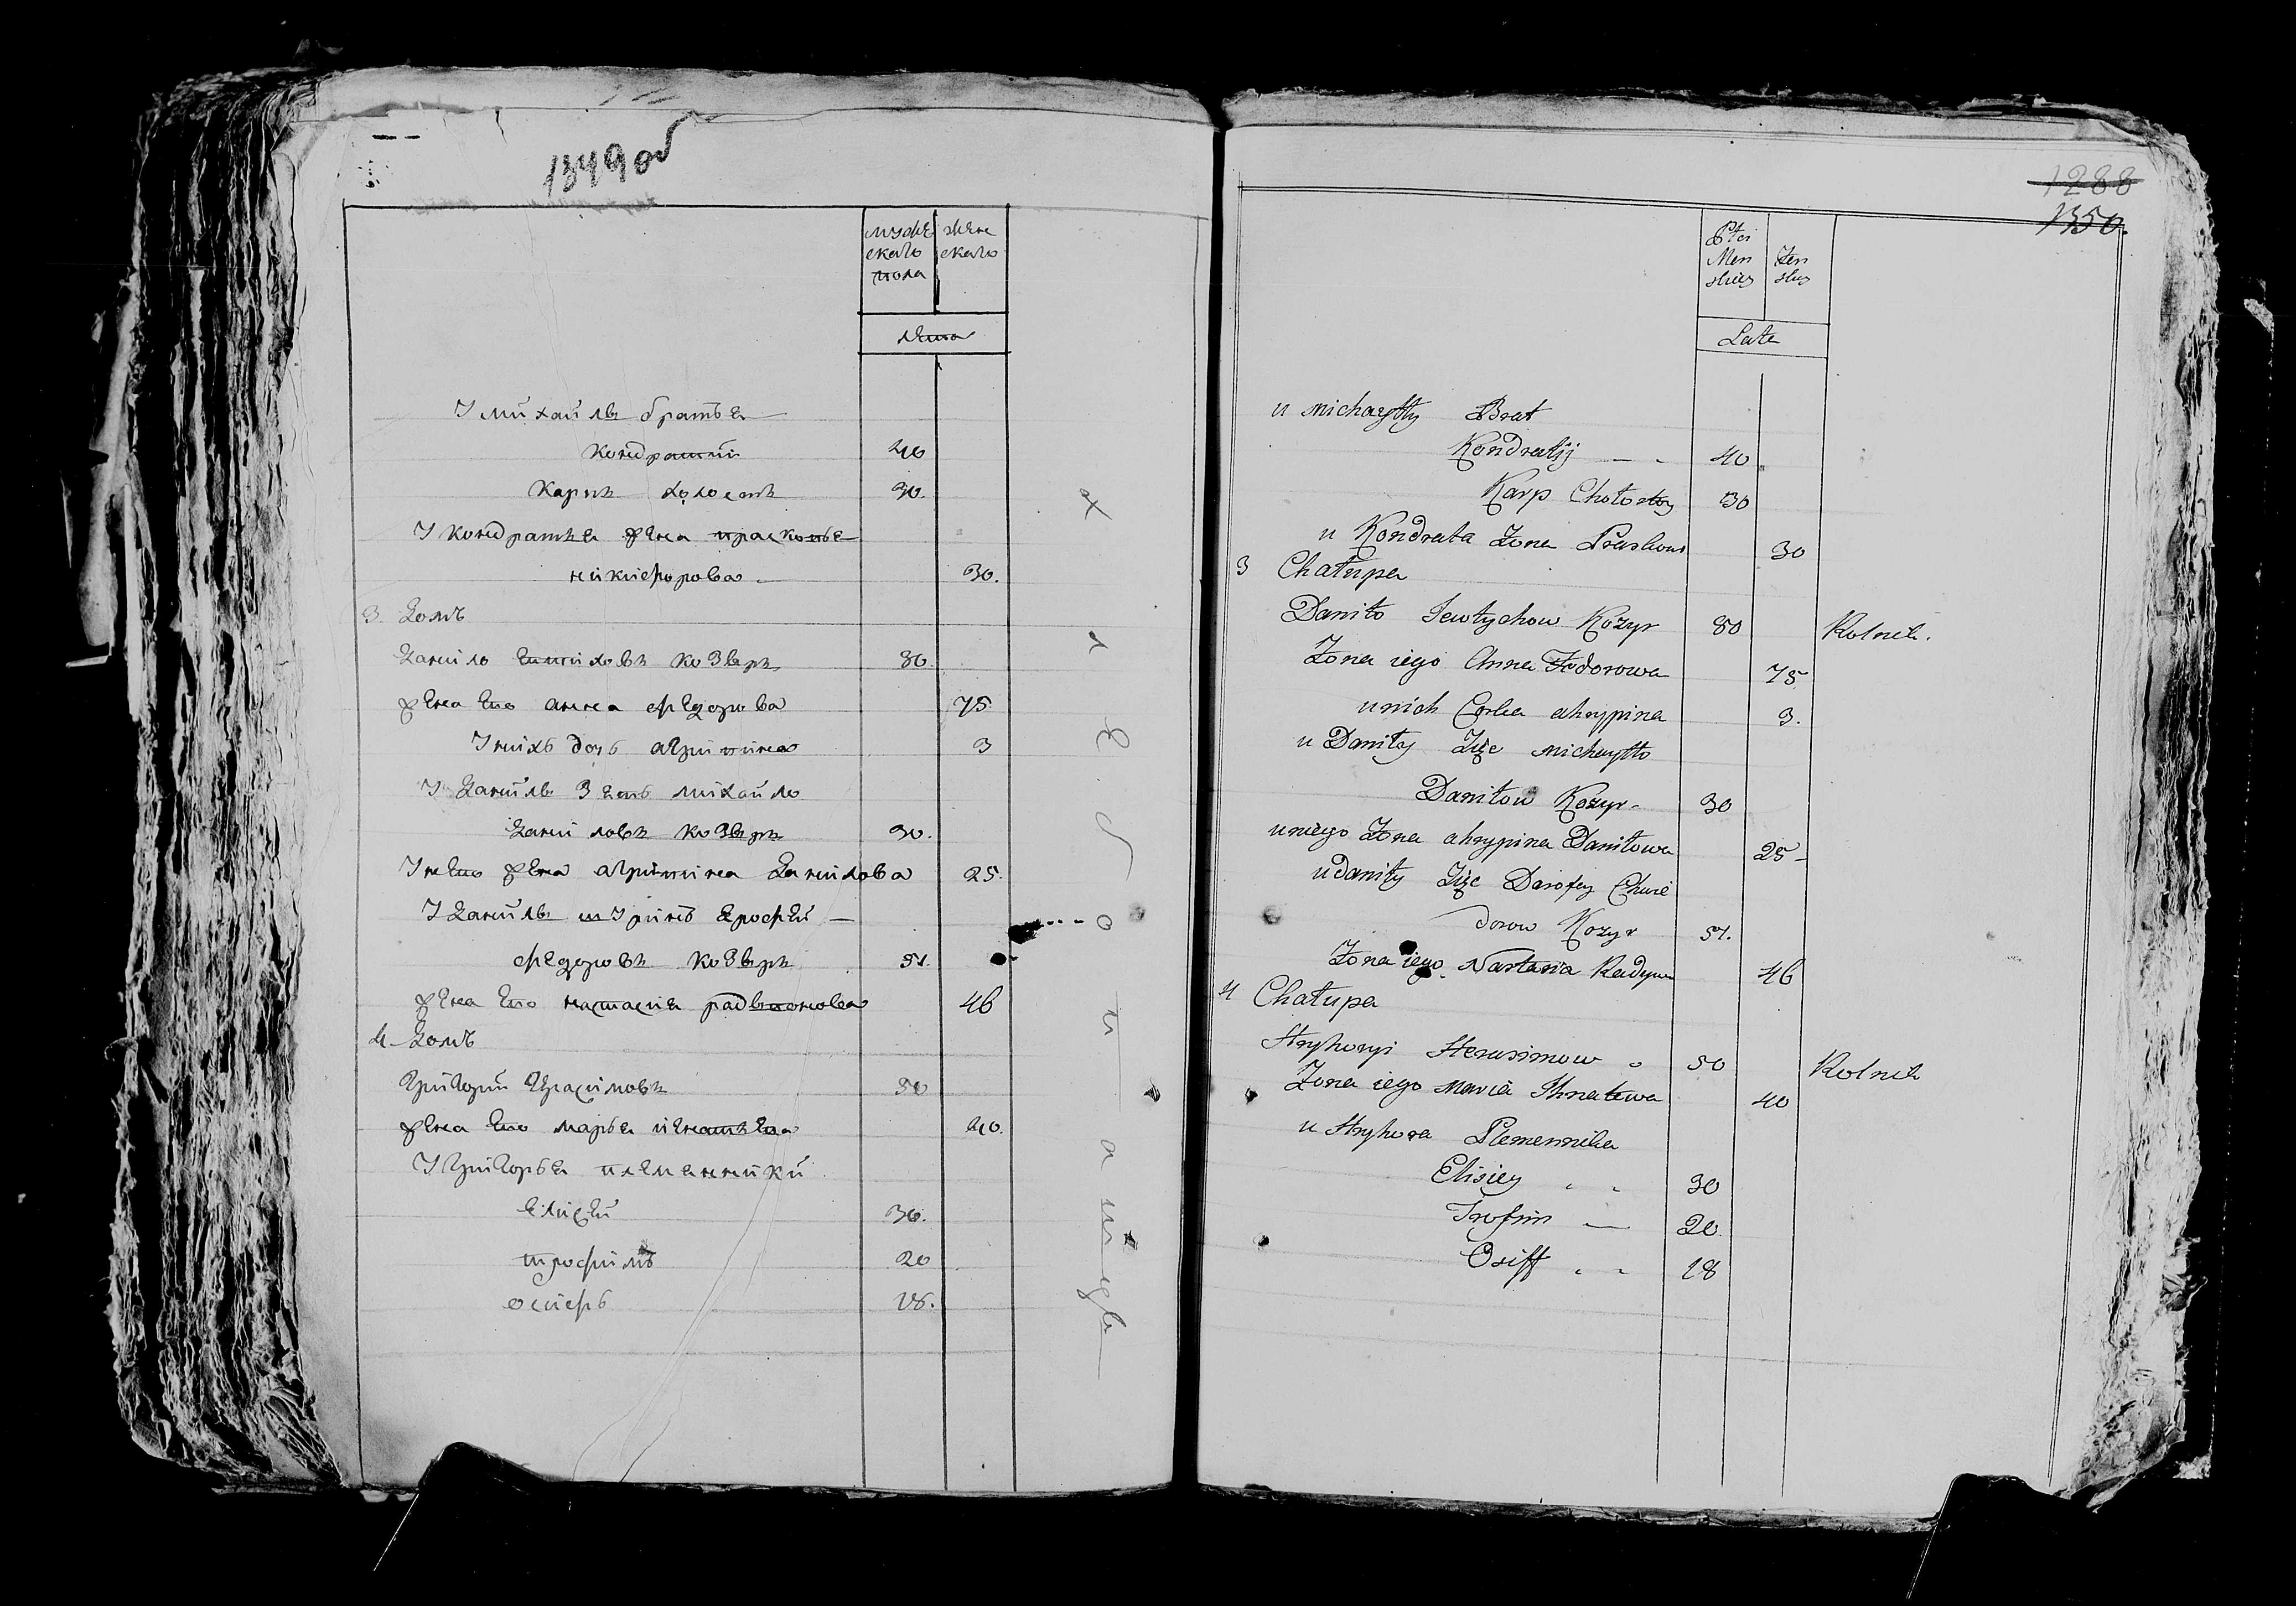 1349 об
муже
скаго
пола
жен
скаго
лета
У михайлы братья
кондратий 40
карпъ холостъ 30.
У кондратья жена прасковья
никифорова 30.
3. домъ
данило евтиховъ козыръ 80.
жена ево анна федорова 75
У нихъ дочь агрипина 3
У данилы зять михайло
даниловъ козыръ 30.
У нево жена агрипина данилова 25.
У данилы
ерофей
федоровъ козыръ 51.
жена ево настасия радвионова 46
4 домъ
григорий герасимовъ 50
жена ево марья игнатьева 40.
У григорья племянники
елисей 30.
трофимъ 20
осифъ 18.
хлебопашцы
1288
1350.
Płci
Men
skiey
Żen
skiey
Lata
u michayłły Brat
Kondratij 40
Karp Chołostoy 30
u Kondrata Żona Praskow 30
3 Chałupa
Daniło Jewtychow Kozyr 80 Rolnik.
Żona iego Anna Fedorowa 75
u nich Corka ahrypina 3.
u Daniły Zięc michayłło
Daniłow Kozyr 30
u niego Żona ahrypina Daniłowa 25
u daniły Zięc Darofey Chwie
dorow Kozyr 51.
Żona iego Nastasia Radywo 46
4 Chałupa
Hryhoryi Herasimow 50 Rolnik
Żona iego Maria Ihnatewa 40
u Hryhora Plemennika
Elisiey 30
Trofim 20.
Osiff 18